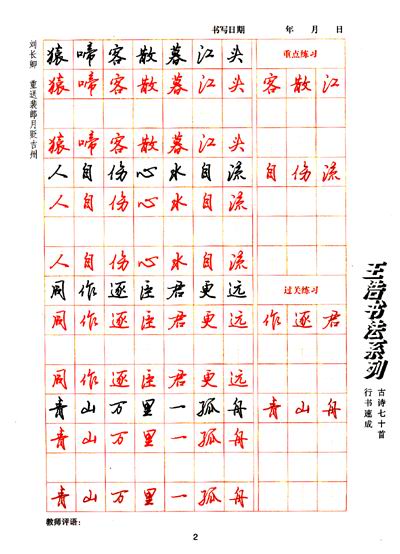 书写日期 年 月 日
刘长卿 重送裴郎中贬吉州
猿啼客散暮江头 重点练习
猿啼客散暮江头 客散江
猿啼客散暮江头
人自伤心水自流 自伤流
人自伤心水自流
人自伤心水自流
同作逐臣君更远 过关练习
同作逐臣君更远 作逐君
同作逐臣君更远
青山万里一孤舟 青山舟
青山万里一孤舟
青山万里一孤舟
王浩书法系列
古诗七十首
行书速成
教师评语：
2